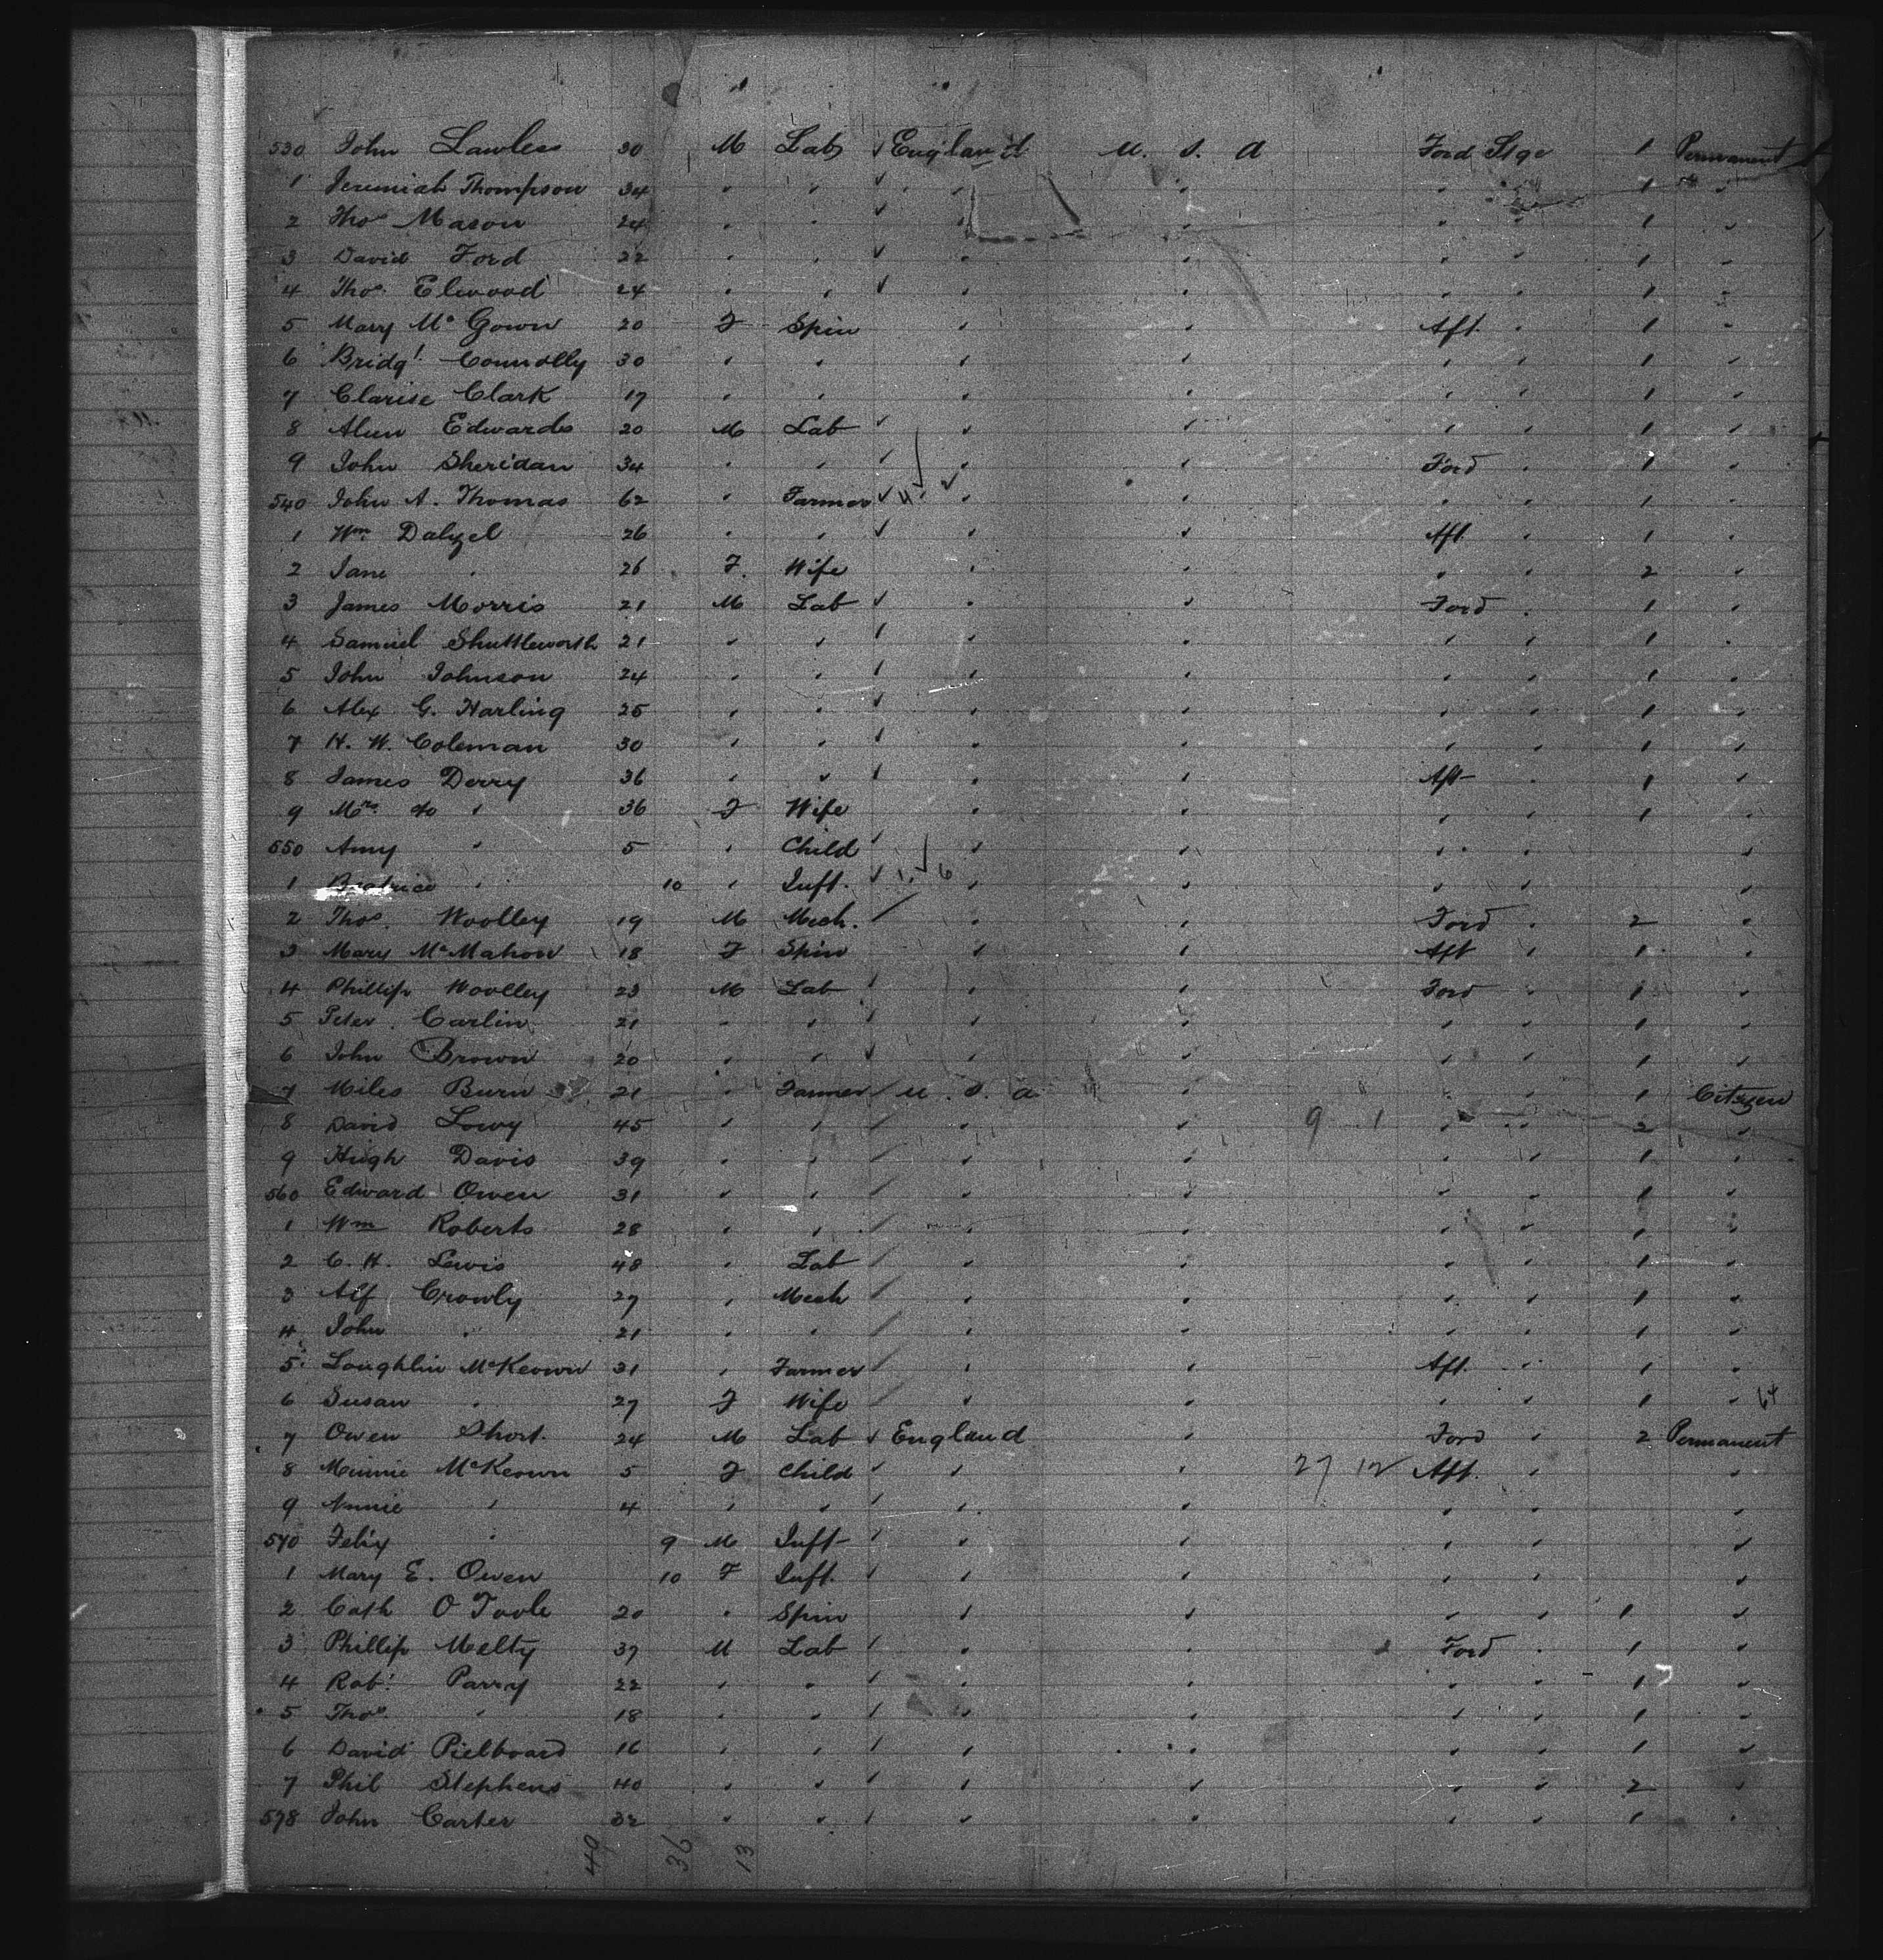 530 John Lawless 30 M Lab ✓ England U. S. A Ford Stge 1 Permanent
1 Jeremiah Thompson 34 " " ✓ " " " " 1 "
2 Thos Mason 24 " " ✓ " " " " 1 "
3 David Ford 22 " " ✓ " " " " 1 "
4 Thos Elwood 24 " " ✓ " " " " 1 "
5 Mary Mc Gown 20 F Spin " " Aft " 1 "
6 Bridgt Connolly 30 " " " " " " 1 "
7 Clarise Clark 17 " " " " " " 1 "
8 Alun Edwards 20 M Lab ✓ " " " " 1 "
9 John Sheridan 34 " " ✓ " " Ford " 1 "
540 John A. Thomas 62 " Farmer ✓ " " " " 1 "
1 Wm Dalzel 26 " " ✓ " " Aft " 1 "
2 Jane " 26 F. Wife " " " " 2 "
3 James Morris 21 M Lab ✓ " " Ford " 1 "
4 Samuel Shuttleworth 21 " " ✓ " " " " 1 "
5 John Johnson 24 " " ✓ " " " " 1 "
6 Alex G. Harling 25 " " ✓ " " " " 1 "
7 H. W. Coleman 30 " " ✓ " " " " 1 "
8 James Derry 36 " " ✓ " " Aft " 1 "
9 Mrs do " 36 F Wife " " " " 1 "
550 Amy " 5 " Child ✓ " " " " "
1 Beatrice " 10 " Inft. ✓ " " " " "
2 Thos. Woolley 19 M Mech. ✓ " " Ford " 2 "
3 Mary McMahon 18 F Spin " " Aft " 1 "
4 Phillip Woolley 23 M Lab ✓ " " Ford " 1 "
5 Peter Carlin 21 " " ✓ " " " " 1 "
6 John Brown 20 " " ✓ " " " " 1 "
7 Miles Burn 21 " Farmer ✓ U. S. A " " " 1 Citizen
8 David Lowy 45 " " ✓ " " 9 1 " " 2 "
9 Hugh Davis 39 " " ✓ " " " " 1 "
560 Edward Owen 31 " " ✓ " " " " 1 "
1 Wm Roberts 28 " " ✓ " " " " 1 "
2 C. H. Lewis 48 " Lab ✓ " " " " 1 "
3 Alf Crowly 27 " Mech ✓ " " " " 1 "
4 John " 21 " " ✓ " " " " 1 "
5 Loughlin McKeown 31 " Farmer ✓ " " Aft. " 1 "
6 Susan " 27 F Wife ✓ " " " " 1 " 64
7 Owen Short. 24 M Lab ✓ England " Ford " 2 Permanent
8 Minnie McKeown 5 F Child ✓ " " 27 12 Aft. " "
9 Annie " 4 " " ✓ " " " " "
570 Felix " 9 M Inft ✓ " " " " "
1 Mary E. Owen 10 F Inft. ✓ " " " " "
2 Cath O Toole 20 " Spin " " " " 1 "
3 Phillip Melty 37 M Lab ✓ " " Ford " 1 "
4 Robt Parry 22 " " ✓ " " " " 1 "
5 Thos. " 18 " " ✓ " " " " 1 "
6 David Pielboard 16 " " ✓ " " " " 1 "
7 Phil Stephens 40 " " ✓ " " " " 2 "
578 John Carter 32 " " ✓ " " " " 1 "
49 36 13